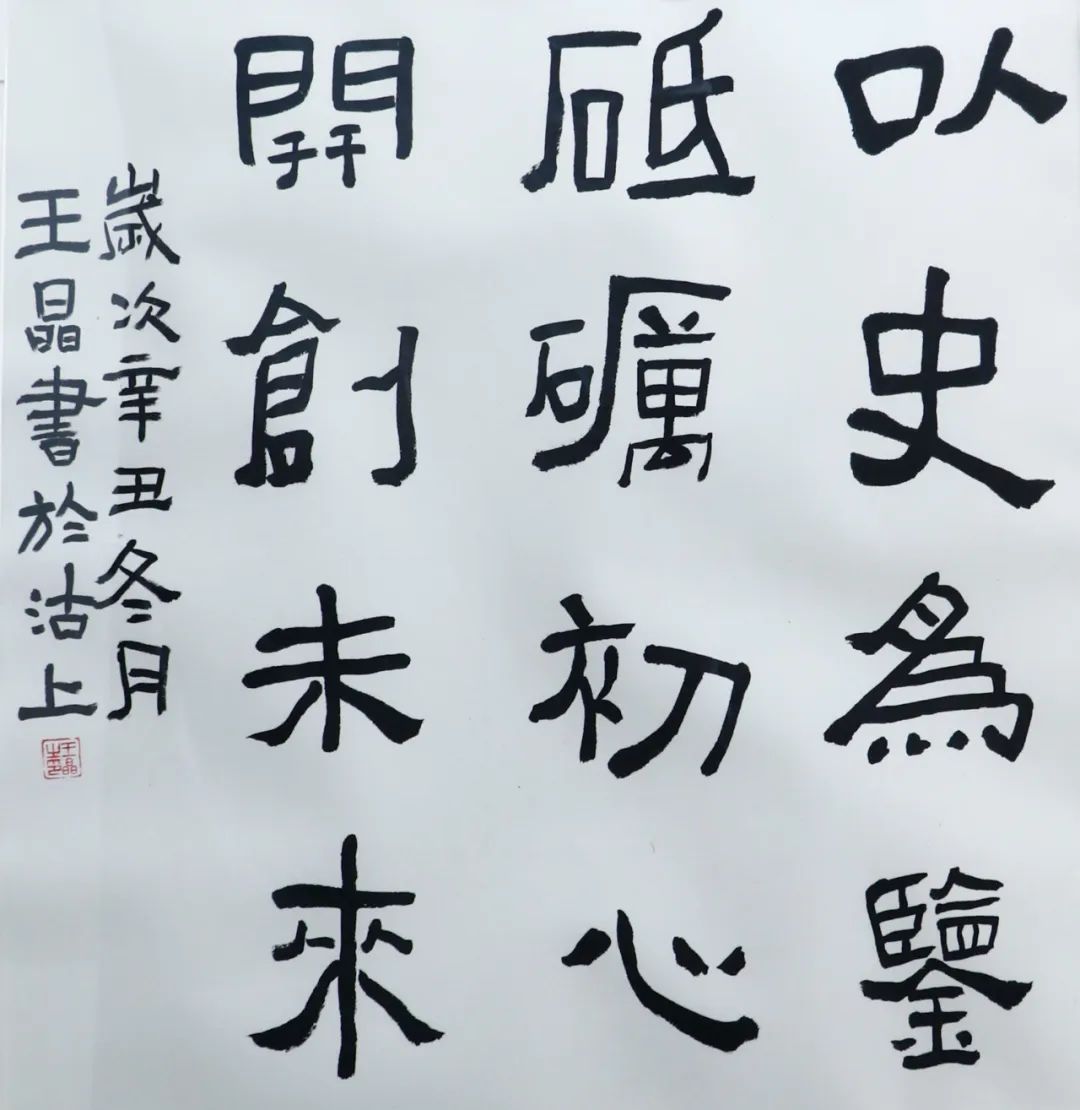 以史爲鑒
砥礪初心
開創未來
歲次辛丑冬月
王晶書於沽上
王晶